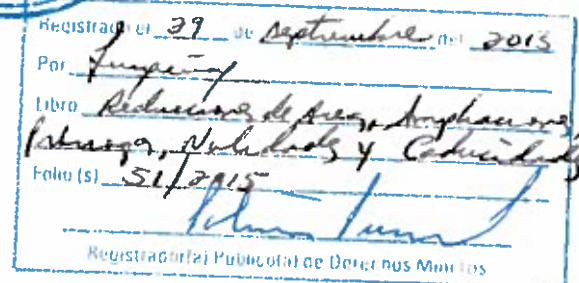 Registrado el 29 de Septiembre del 2015
Por
Libro Reducciones de Area, Ampliaciones
Nulidades y Caducidades
Folio (s) 51/2015
Registrador(a) Publico(a) de Derechos Mineros